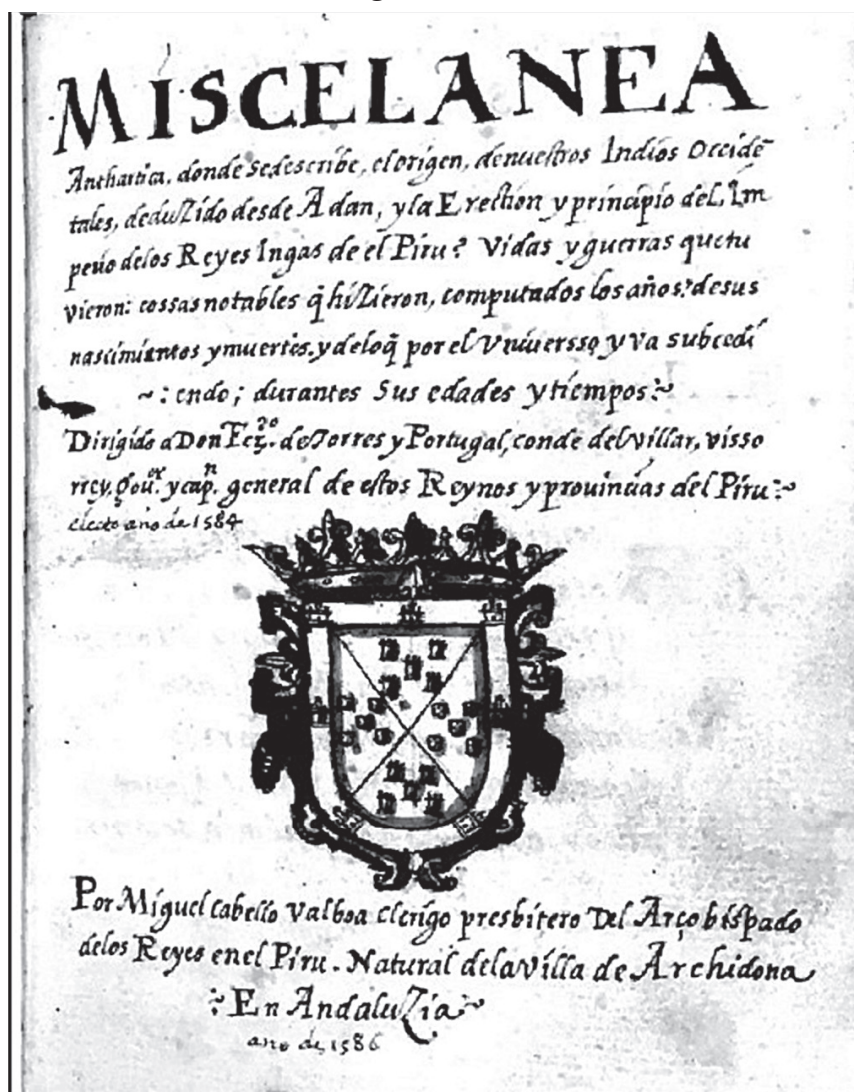 MISCELANEA
Anthartica. donde se descríbe, el orígen, de nuestros Indios Occidẽ
tales, deduzído desde Adan, y la Erection y príncipio del, Im
perio de los Reyes Ingas de el Piru? Vidas y guerras que tu
vieron: cossas notables q̃ hízieron, computados los años: de sus
nascimiẽntos y muertes. y de loq̃ por el Vniuersso, y va subcedí
~: endo; durantes Sus edades y tíempos:~
Dirigído a Don Fer.ᵈᵒ de Torres y Portugal, conde del víllar, visso
rrey. gou.ᵒʳ y cap.ⁿ general de estos Reynos y prouincias del Píru:~
electo año de 1584
Por Míguel cabello valboa clerígo presbítero Del Arçobíspado
de los Reyes en el Píru. Natural de la vílla de Archidona
:~En Andaluzía~
ano de, 1586